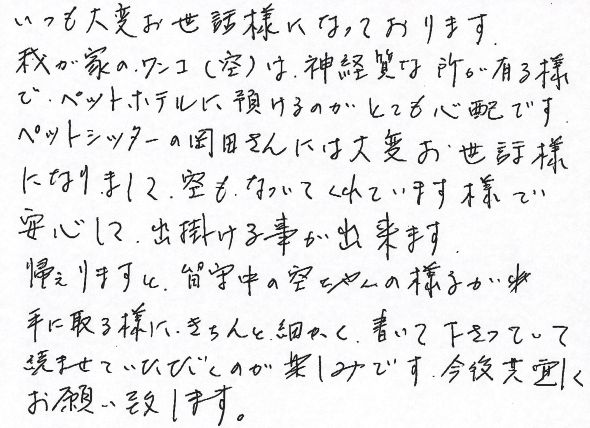 いつも大変お世話様になっております.
我が家のワンコ(空)は、神経質な所が有る様
で、ペットホテルに預けるのがとても心配です.
ペットシッターの岡田さんには大変お世話様
になりまして、空も、なついてくれています様で
安心して、出掛ける事が出来ます.
帰えりますと、留守中の空ちゃんの様子が
手に取る様に、きちんと細かく、書いて下さっていて
読ませていただくのが楽しみです.今後共宜しく
お願い致します。